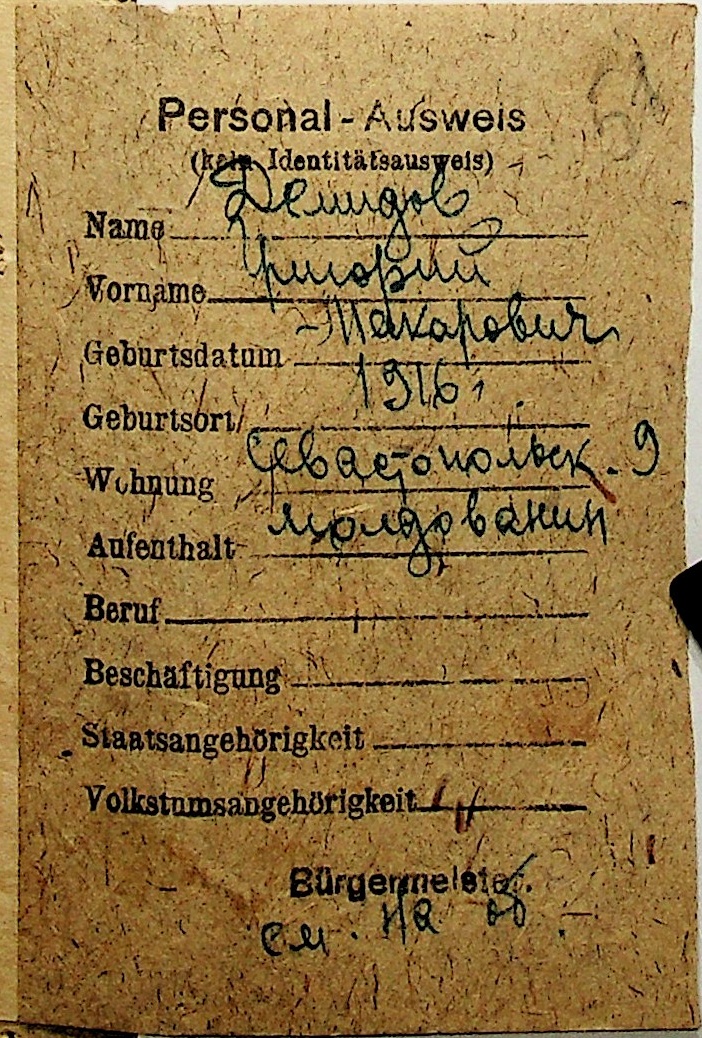 51
Personal-Ausweis
(kein Identitätsausweis)
Name Демидов
Vorname Григорий
Макарович
Geburtsdatum
1916 г.
Geburtsort
Севастопольск. 9
Wohnung
молдованин
Aufenthalt
Beruf
Beschäftigung
Staatsangehörigkeit
Volkstumsangehörigkeit
Bürgermeister.
см. на об